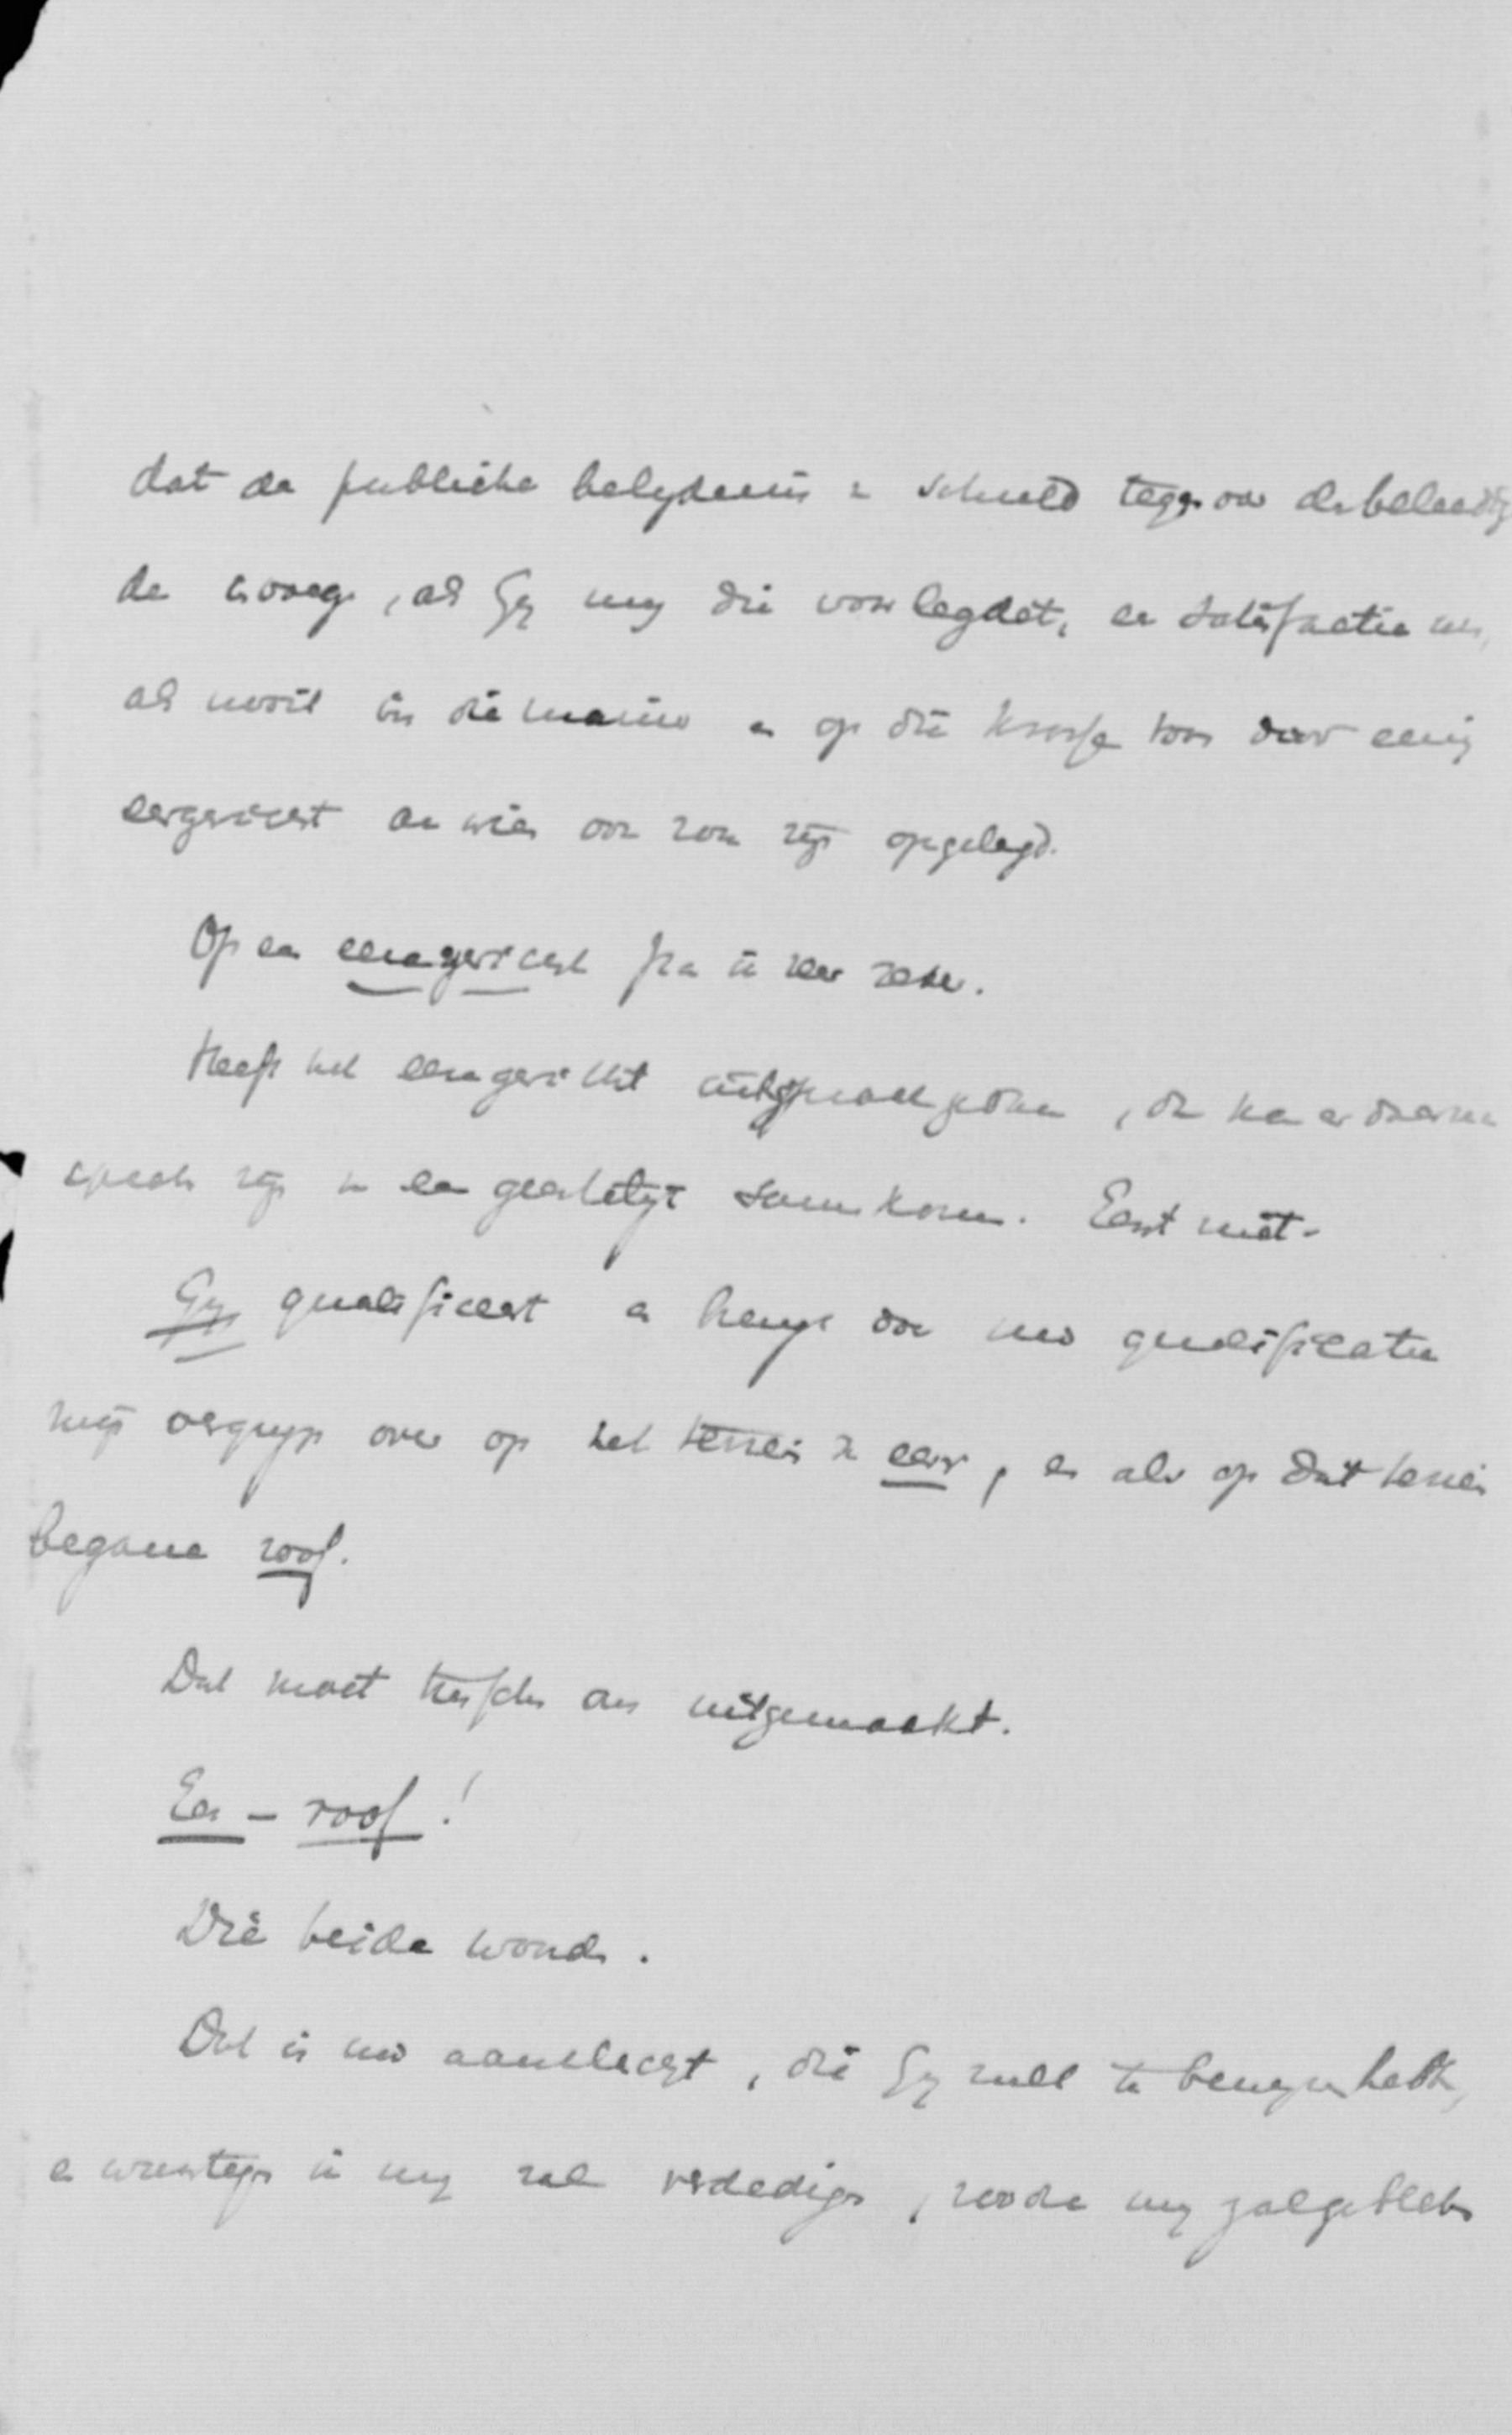 dat de publieke belydenis v schuld tegenover de beleedig
de vraag, als Gy my die voorlegdet, en satisfactie
als nooit in die manier en op die krasse toon door eenig
eergericht aan wien ook zou zijn opgelegd.
Op een eeregericht ik zeer zeker.
Heeft het eeregericht uitspraak gedaan, dan kan er daarna
sprake zijn v een samenkomen. Eerst niet.
Gy qualificeert en brengt door uw qualificatie
mijn vergryp over op het terrein v eer, en als op dat terrein
begane roof.
Dat moet tusschen ons uitgemaakt.
Eer - roof!
Die beide woorden.
Dat is uw aanklacht, die Gy zult te bewyzen hebben,
en waartegen ik my zal verdedigen, zoo de my zal gebleken